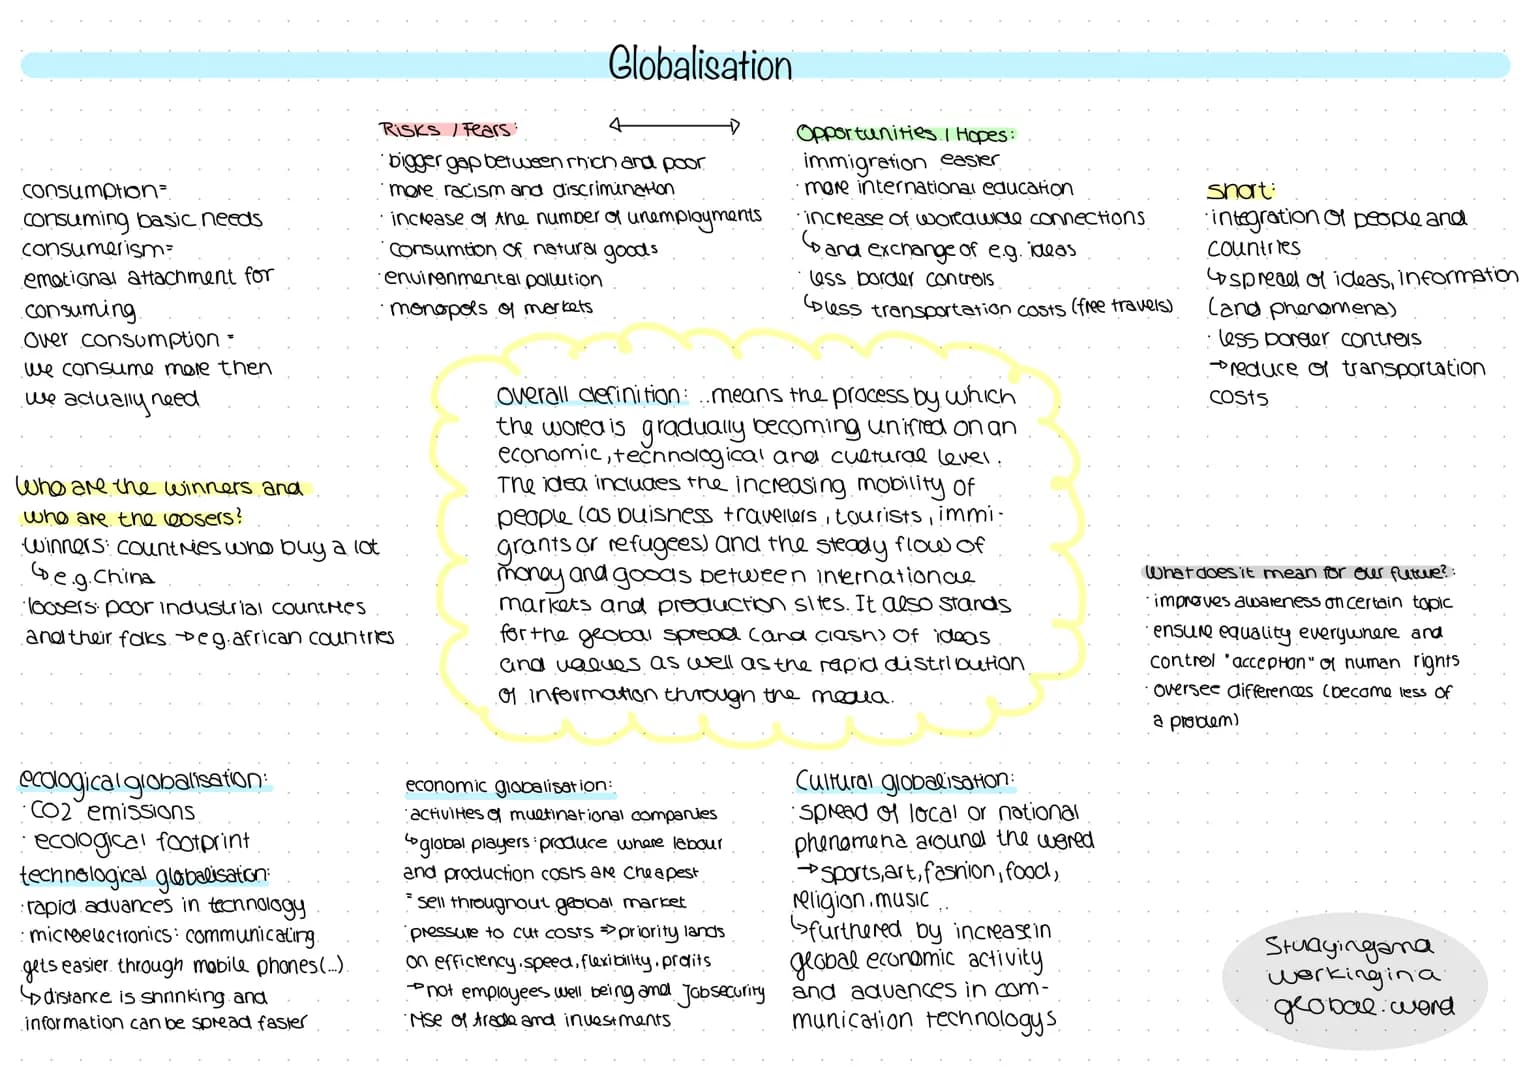 Globalisation
Risks / Fears:
· bigger gap between rhich and poor
· more racism and discrimination
· increase of the number of unemployments
· consumtion of natural goods
· environmental pollution
· monopols of markets
Opportunities / Hopes:
immigration easier
· more international education
· increase of worldwide connections
↳ and exchange of e.g. ideas
· less border controls
↳ less transportation costs (free travels)
consumption=
consuming basic needs
consumerism=
emotional attachment for
consuming
over consumption =
we consume more then
we actually need
short:
· integration of people and
countries
↳ spread of ideas, information
(and phenomena)
· less border controls
→ reduce of transportation
costs
overall definition: ..means the process by which
the world is gradually becoming unified on an
economic, technological and cultural level.
The idea includes the increasing mobility of
people (as buisness travellers, tourists, immi-
grants or refugees) and the steady flow of
money and goods between international
markets and production sites. It also stands
for the global spread (and clash) of ideas
and values as well as the rapid distribution
of information through the media.
Who are the winners and
who are the loosers?
· winners: countries who buy a lot
↳ e.g. China
· loosers: poor industrial countries
and their folks → e.g. african countries
What does it mean for our future?:
· improves awareness on certain topic
· ensure equality everywhere and
control "acception" of human rights
· oversee differences (become less of
a problem)
ecological globalisation:
· CO2 emissions
· ecological footprint
technological globalisation:
· rapid advances in technology
· microelectronics: communicating
gets easier through mobile phones (...)
↳ distance is shrinking and
information can be spread faster
economic globalisation:
· activities of multinational companies
↳ global players: produce where labour
and production costs are cheapest
= sell throughout global market
· pressure to cut costs ⇒ priority lands
on efficiency, speed, flexibility, profits
→ not employees well being and Jobsecurity
· rise of trade and investments
Cultural globalisation:
· spread of local or national
phenomena around the world
→ sports, art, fashion, food,
religion, music ..
↳ furthered by increase in
global economic activity
and advances in com-
munication technologys
Studying and
working in a
global word